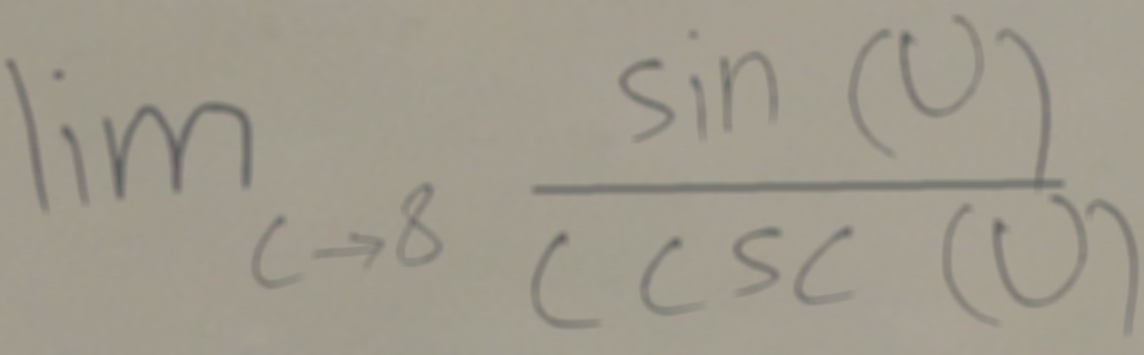 lim c→8 sin (U) / c csc (U)